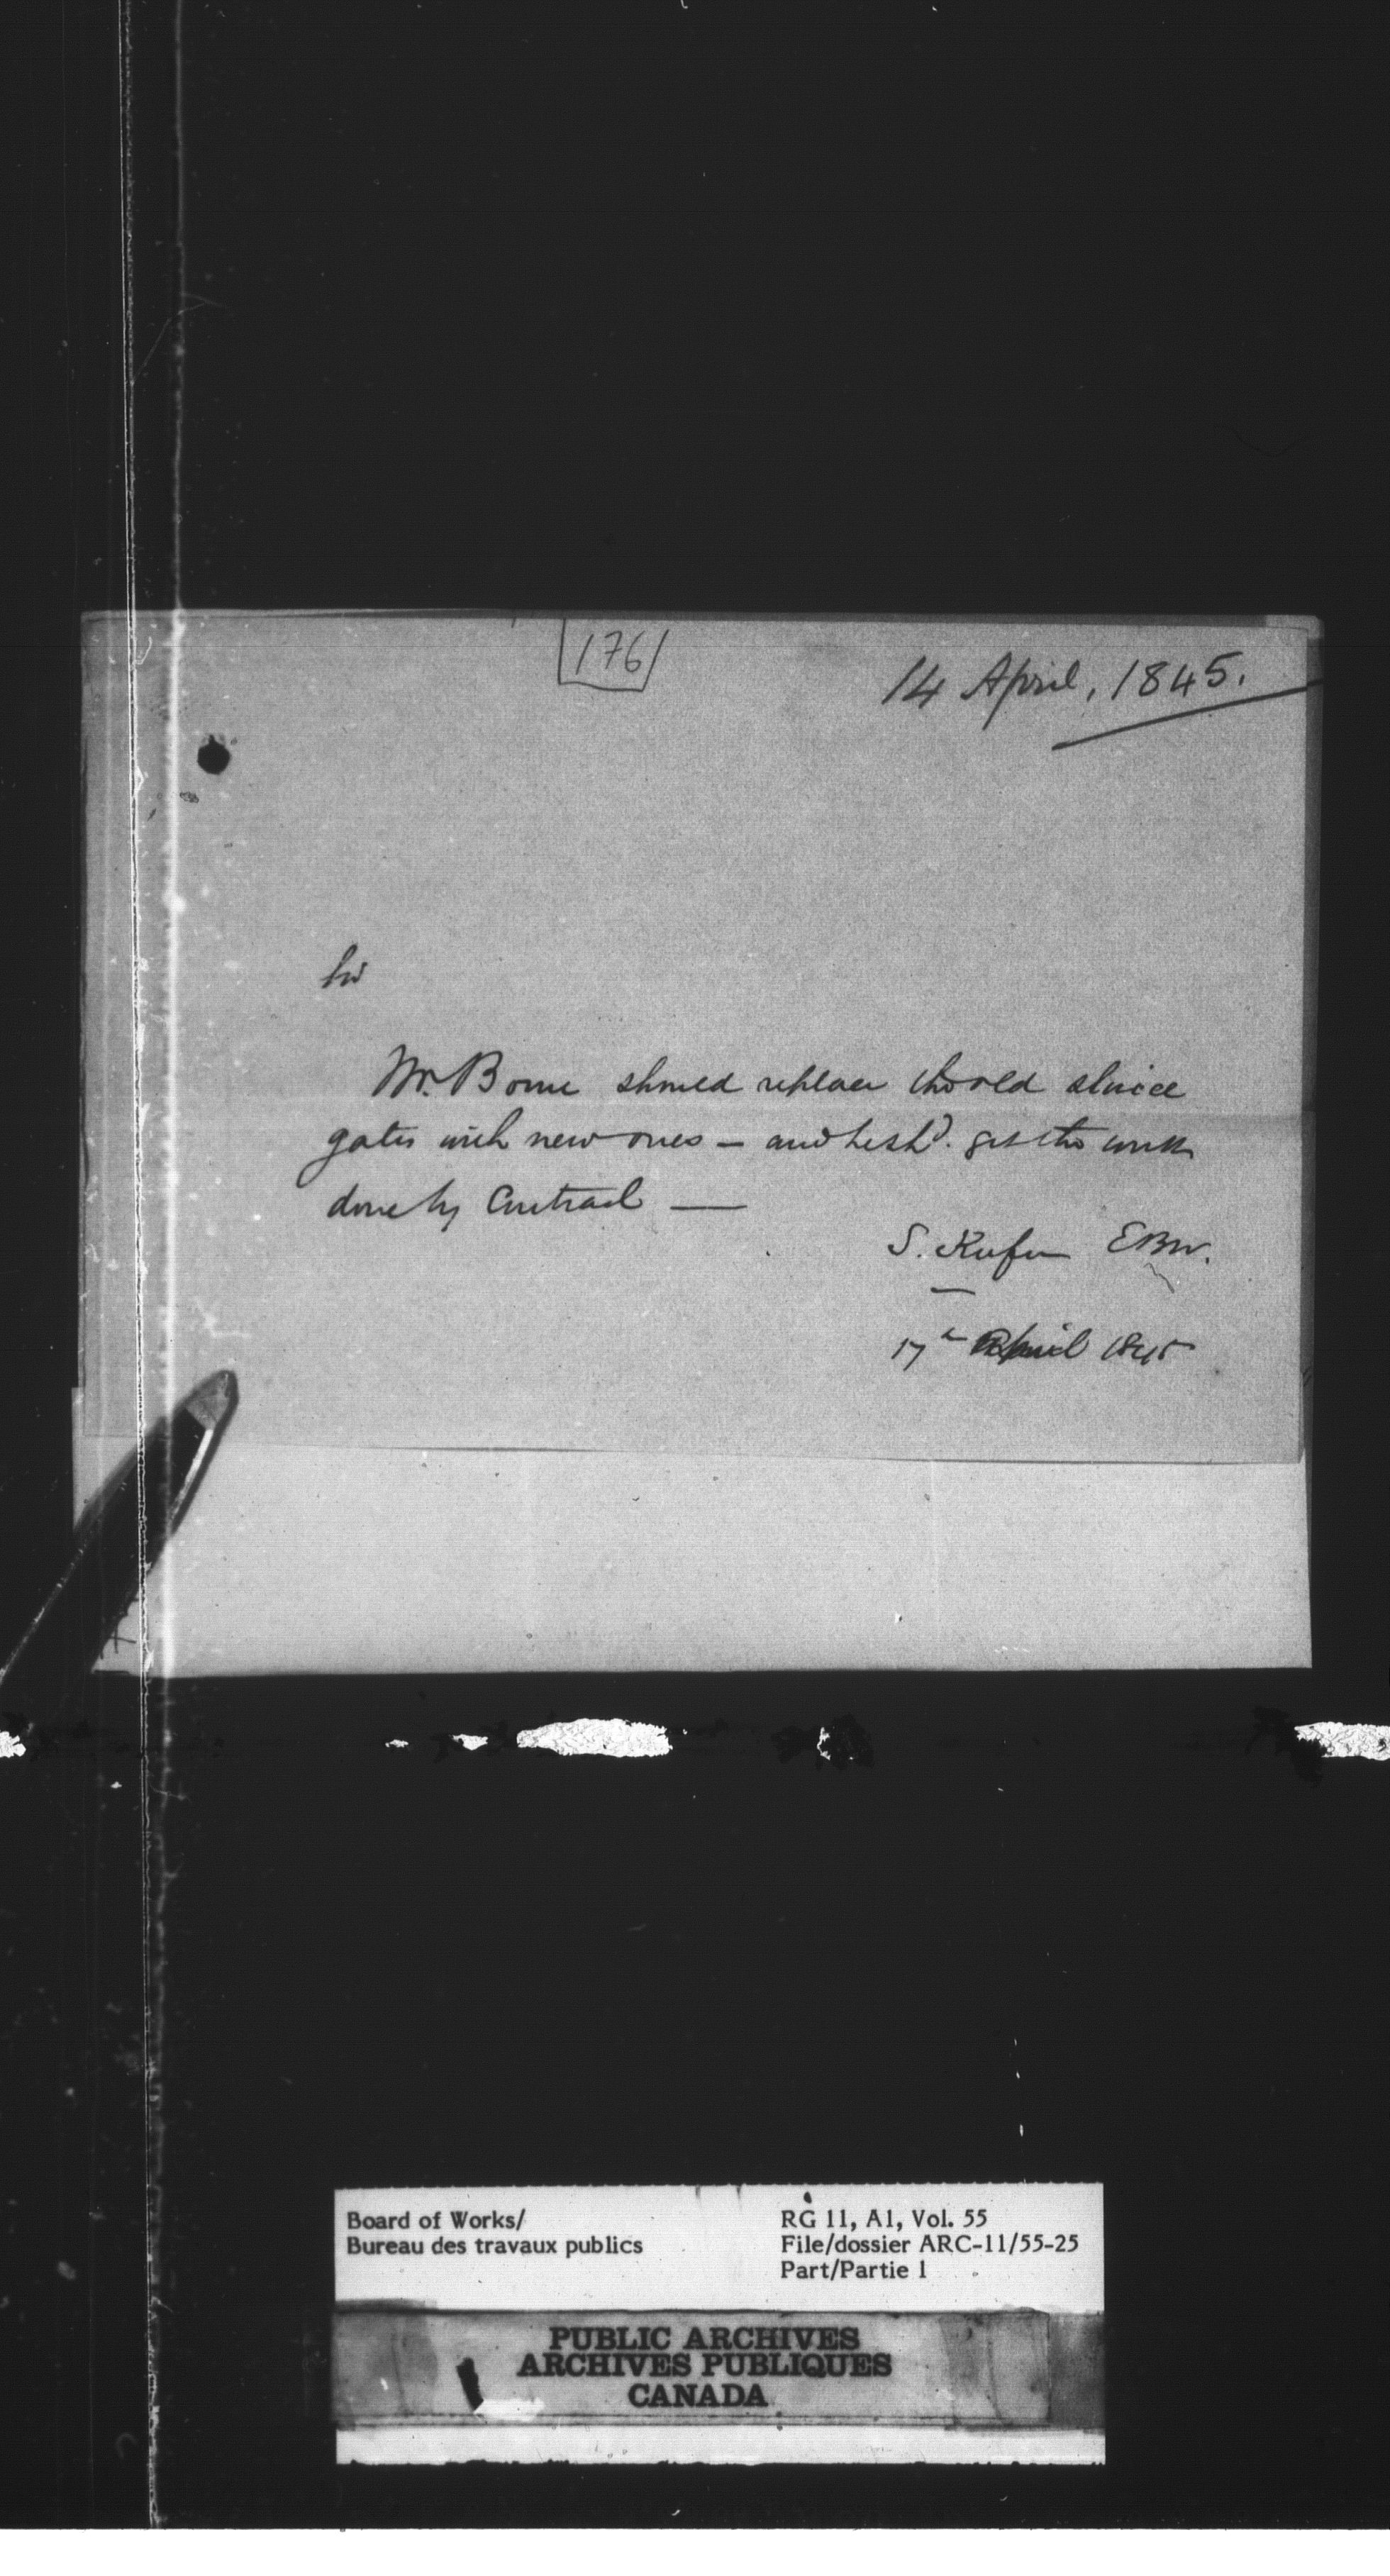 176
14 April, 1845.
Sir
Mr. Bowie should replace the old sluice
gates with new ones — and he shd. get the work
done by Contract —
S. Keefer EBW.
17th April 1845
Board of Works/
Bureau des travaux publics
RG 11, A1, Vol. 55
File/dossier ARC-11/55-25
Part/Partie 1
PUBLIC ARCHIVES
ARCHIVES PUBLIQUES
CANADA